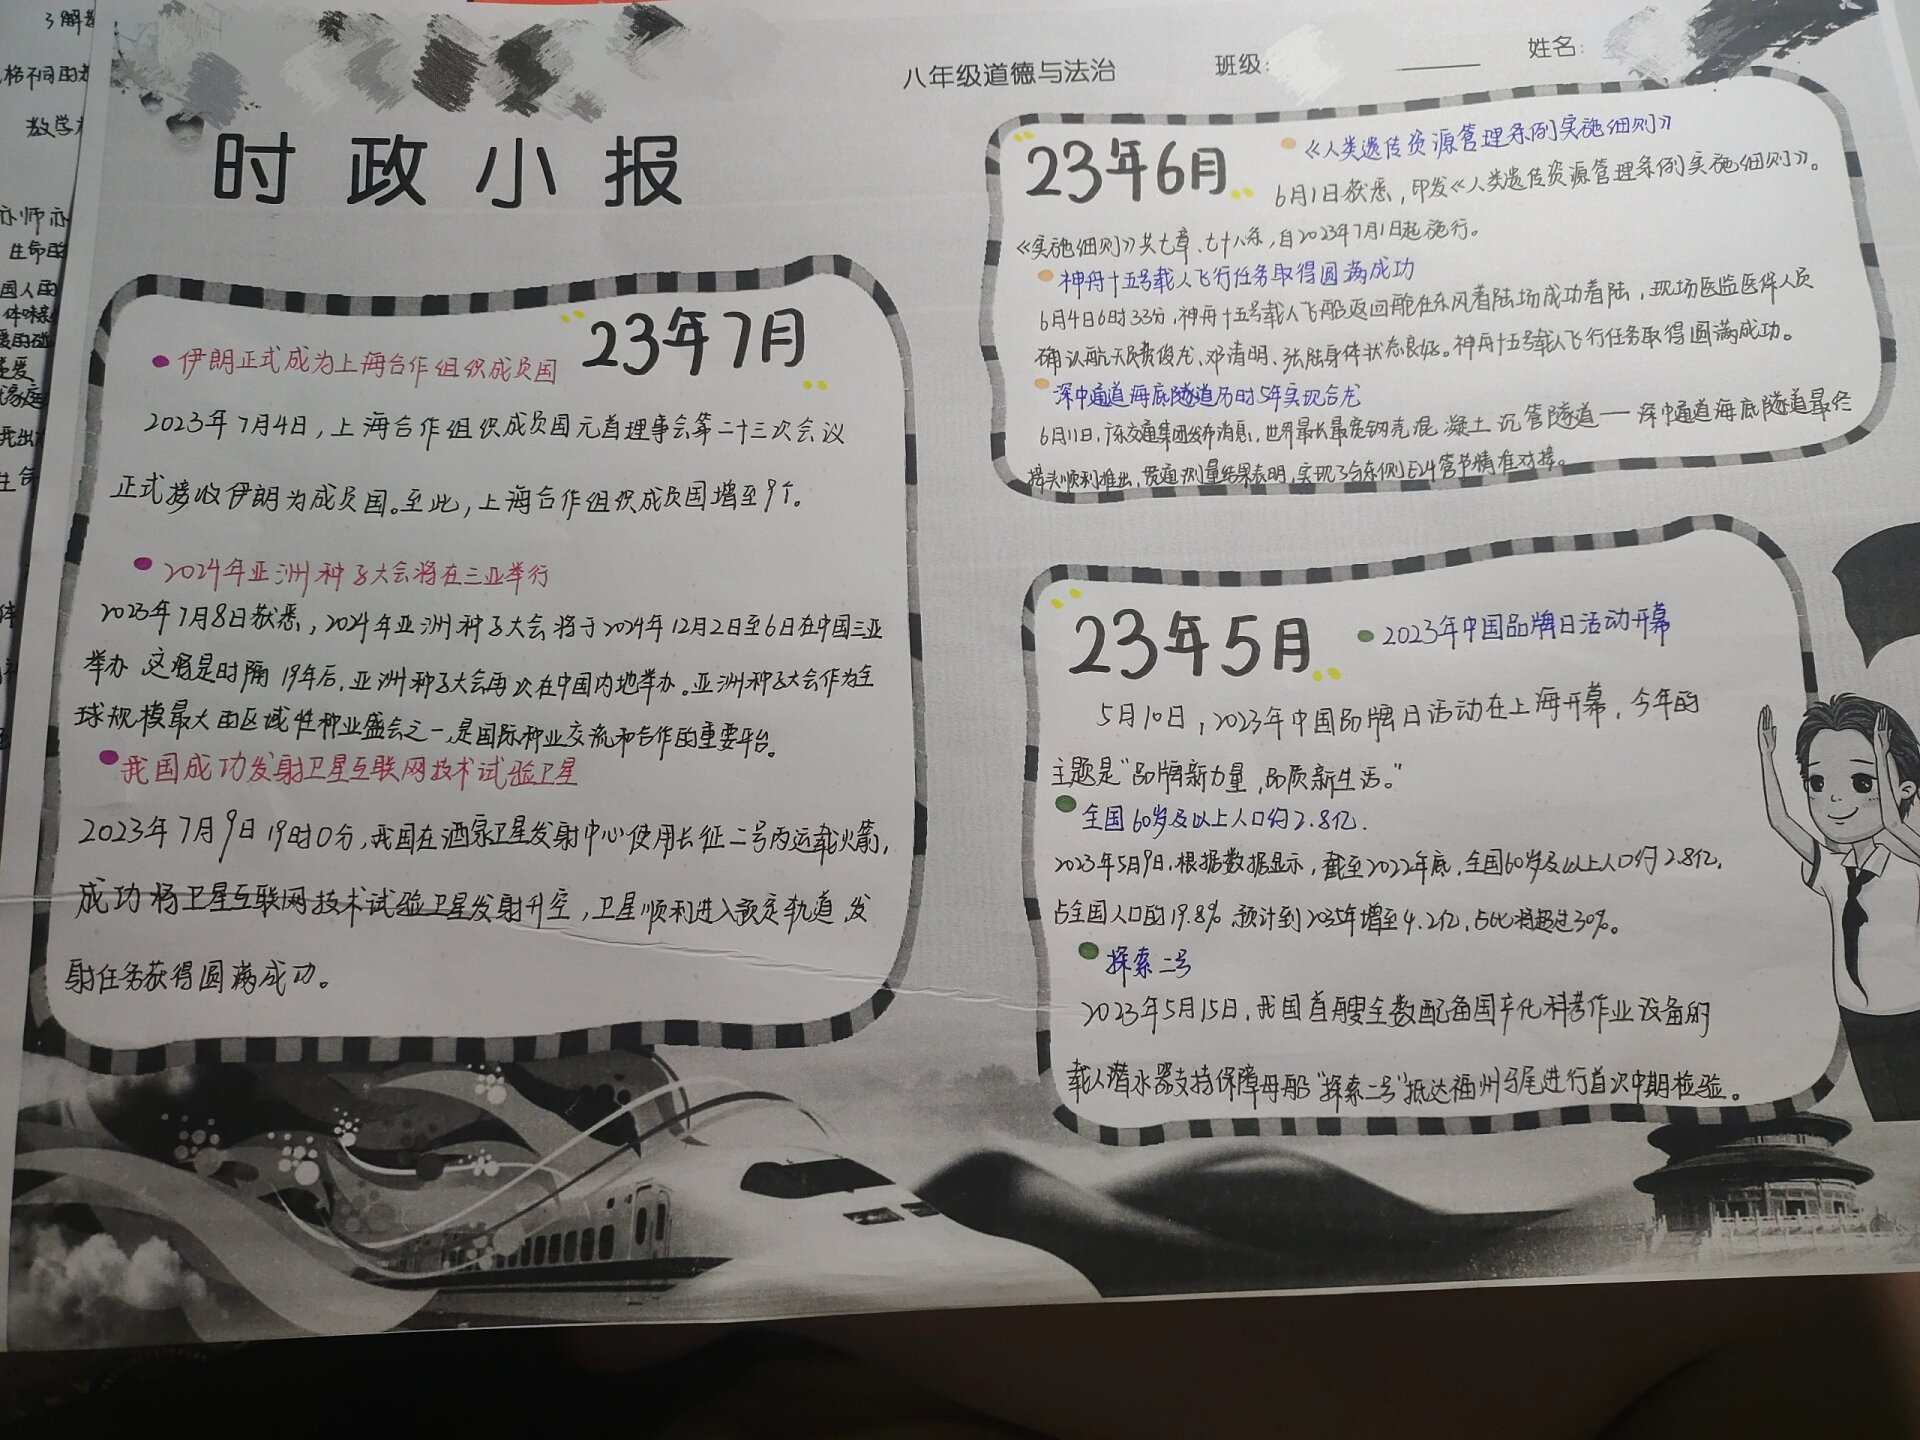 八年级道德与法治
班级:
姓名:
时政小报
23年7月
伊朗正式成为上海合作组织成员国
2023年7月4日,上海合作组织成员国元首理事会第二十三次会议
正式接收伊朗为成员国。至此,上海合作组织成员国增至9个。
2024年亚洲种子大会将在三亚举行
2023年7月8日获悉,2024年亚洲种子大会将于2024年12月2日至6日在中国三亚
举办 这将是时隔19年后,亚洲种子大会再次在中国内地举办。亚洲种子大会作为全
球规模最大的区域性种业盛会之一,是国际种业交流和合作的重要平台。
我国成功发射卫星互联网技术试验卫星
2023年7月9日19时0分,我国在酒泉卫星发射中心使用长征二号丙运载火箭,
成功将卫星互联网技术试验卫星发射升空,卫星顺利进入预定轨道,发
射任务获得圆满成功。
23年6月
《人类遗传资源管理条例实施细则》
6月1日获悉,印发《人类遗传资源管理条例实施细则》。
《实施细则》共七章、七十八条,自2023年7月1日起施行。
神舟十五号载人飞行任务取得圆满成功
6月4日6时33分,神舟十五号载人飞船返回舱在东风着陆场成功着陆,现场医监医保人员
确认航天员费俊龙、邓清明、张陆身体状态良好。神舟十五号载人飞行任务取得圆满成功。
深中通道海底隧道历时5年实现合龙
6月11日,广东交通集团发布消息,世界最长最宽钢壳混凝土沉管隧道——深中通道海底隧道最终
接头顺利推出,贯通测量结果表明,实现了与东侧E24管节精准对接。
23年5月
2023年中国品牌日活动开幕
5月10日,2023年中国品牌日活动在上海开幕,今年的
主题是"品牌新力量,品质新生活。"
全国60岁及以上人口约2.8亿.
2023年5月9日,根据数据显示,截至2022年底,全国60岁及以上人口约2.8亿,
占全国人口的19.8%,预计到2035年增至4.2亿,占比将超过30%。
探索二号
2023年5月15日,我国首艘全数配备国产化科考作业设备的
载人潜水器支持保障母船"探索二号"抵达福州马尾进行首次中期检验。